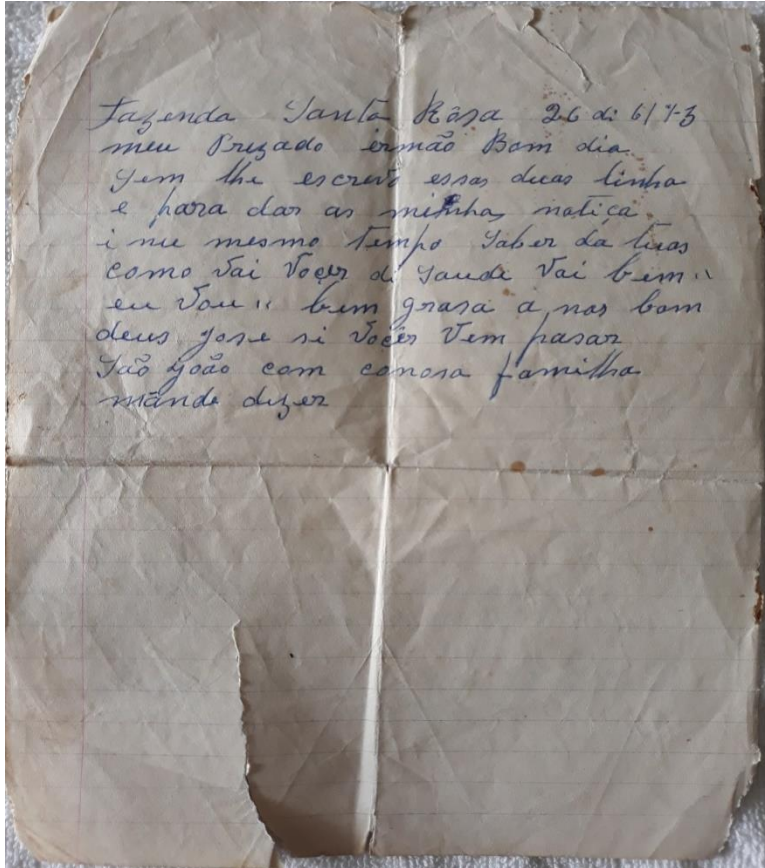 Fazenda Santa Rôsa 26 di 6/73
meu Prezado irmão Bom dia
Sem lhe escrevo essas duas linha
e para dar as minhas notiça
i nu mesmo tempo Saber da tuas
como Vai Voçes di Saude Vai bem "
eu Vou " bem grasa a nos bom
deus jose si Voçês Vem pasar
São joão com conosa familha
mande dizer